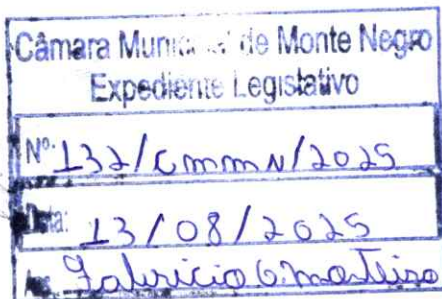 Câmara Municipal de Monte Negro
Expediente Legislativo
Nº: 132/CMMN/2025
Data: 13/08/2025
Ass. Fabricio O. Monteiro